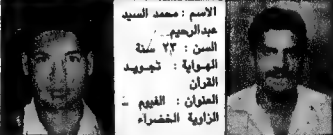 الاسم : محمد السيد
عبدالرحيم
السن : ٢٣ سنة
الهواية : تجويد
القرآن
العنوان : الفيوم -
الزاوية الخضراء